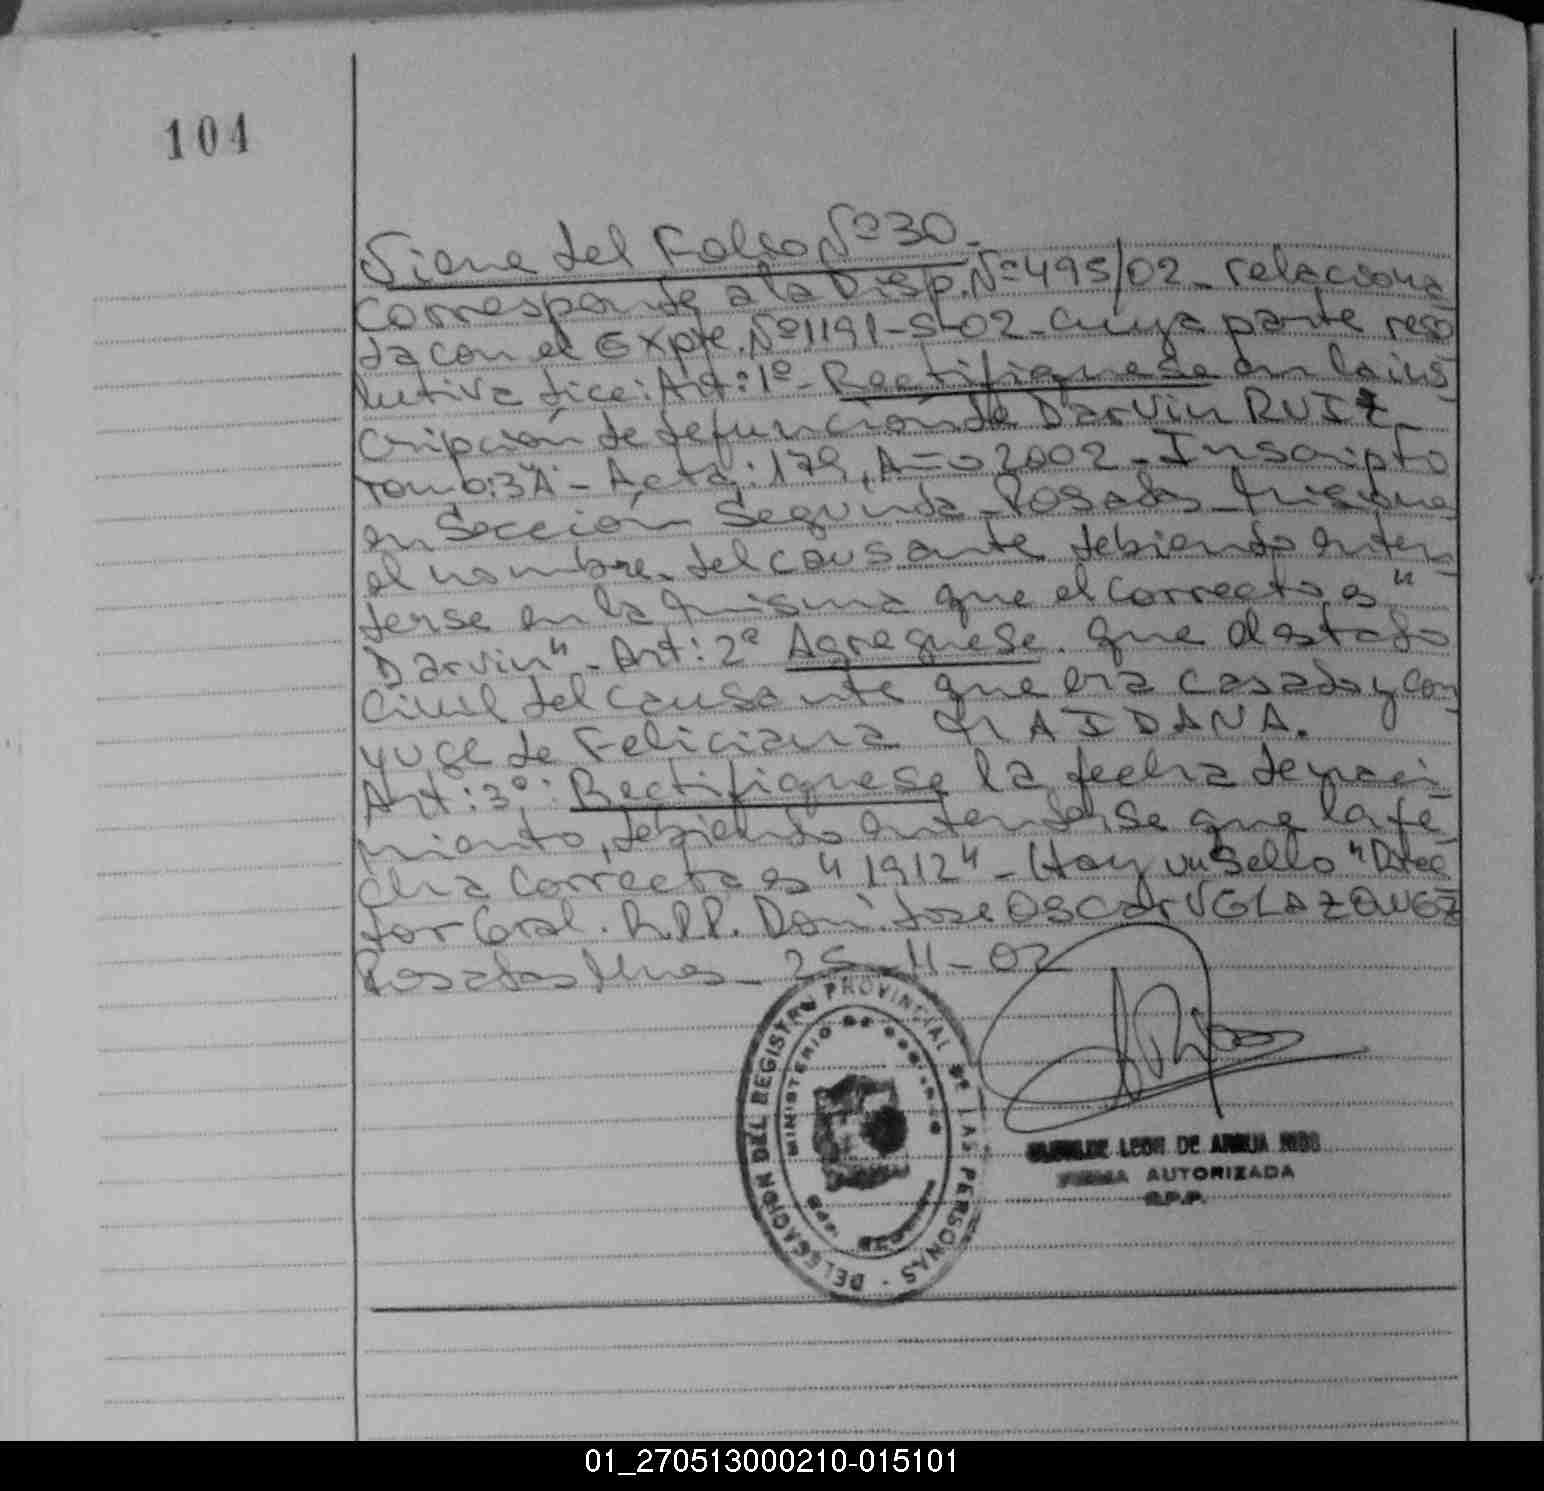 104
Viene del Folio Nº 30.
corresponde a la Disp. Nº 495/02 - relaciona
da con el Expte. Nº 1191-S-02 - cuya parte reso
lutiva dice: Art: 1º - Rectifiquese en la ins
cripción de defunción de Darvin RUIZ
Tomo: 3º - Acta: 179, Año 2002 - Inscripto
en Sección Segunda - Posadas - Misiones
el nombre del causante debiendo enten
derse en la misma que el correcto es "
Darvin" - Art: 2º Agreguese que el estado
civil del causante que era casado y con
yuge de Feliciana MAIDANA.
Art: 3º: Rectifiquese la fecha de naci
miento, debiendo entenderse que la fe
cha correcta es "1912" - Hay un sello "Direc
tor Gral. R.P.P. Don: Jose Oscar VELAZQUEZ
Posadas Mnes - 25-11-02
DELEGACION DEL REGISTRO PROVINCIAL DE LAS PERSONAS
MINISTERIO DE GOBIERNO
LEON DE
FIRMA AUTORIZADA
R.P.P.
01_270513000210-015101